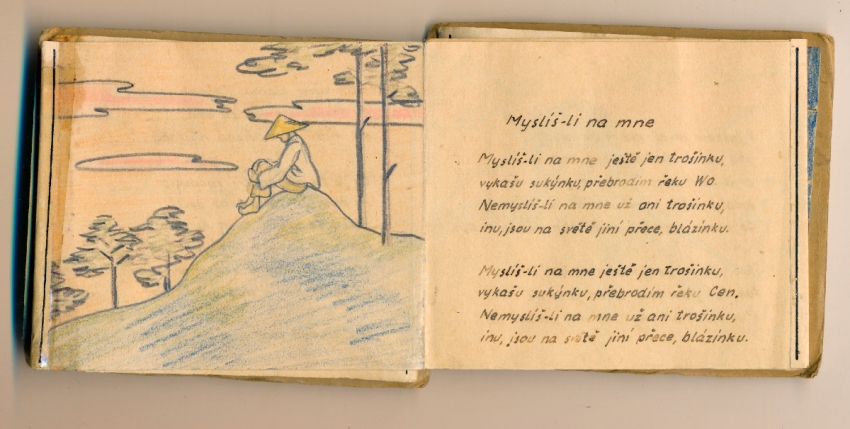 Myslíš-li na mne
Myslíš-li na mne ještě jen trošinku,
vykašu sukýnku, přebrodím řeku Wo.
Nemyslíš-li na mne už ani trošinku,
inu, jsou na světě jiní přece, blázínku.
Myslíš-li na mne ještě jen trošinku,
vykašu sukýnku, přebrodím řeku Cen.
Nemyslíš-li na mne už ani trošinku,
inu, jsou na světě jiní přece, blázínku.